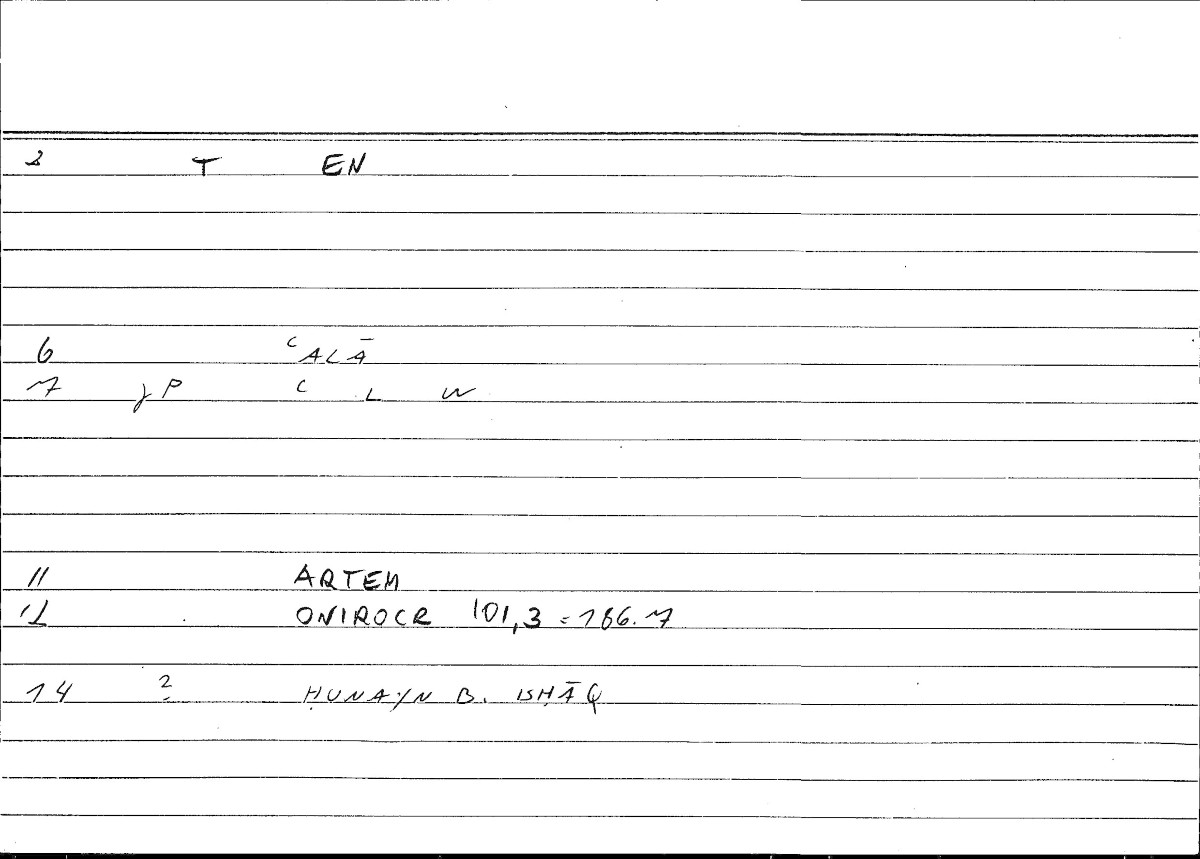 2 T EN
6 ʿALĀ
7 jP ʿ L W
11 ARTEM
12 ONIROCR 101,3 = 186.7
14 2 ḤUNAYN B. ISḤĀQ